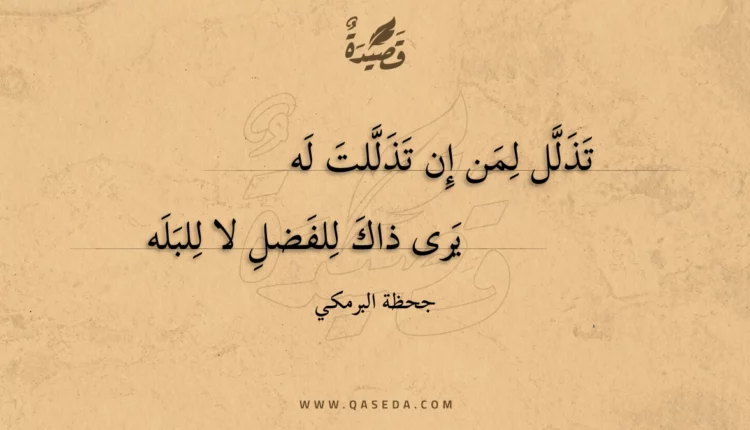 قَصِيدَةٌ
تَذَلَّل لِمَن إِن تَذَلَّلتَ لَه
يَرى ذاكَ لِلفَضلِ لا لِلبَلَه
جحظة البرمكي
WWW.QASEDA.COM